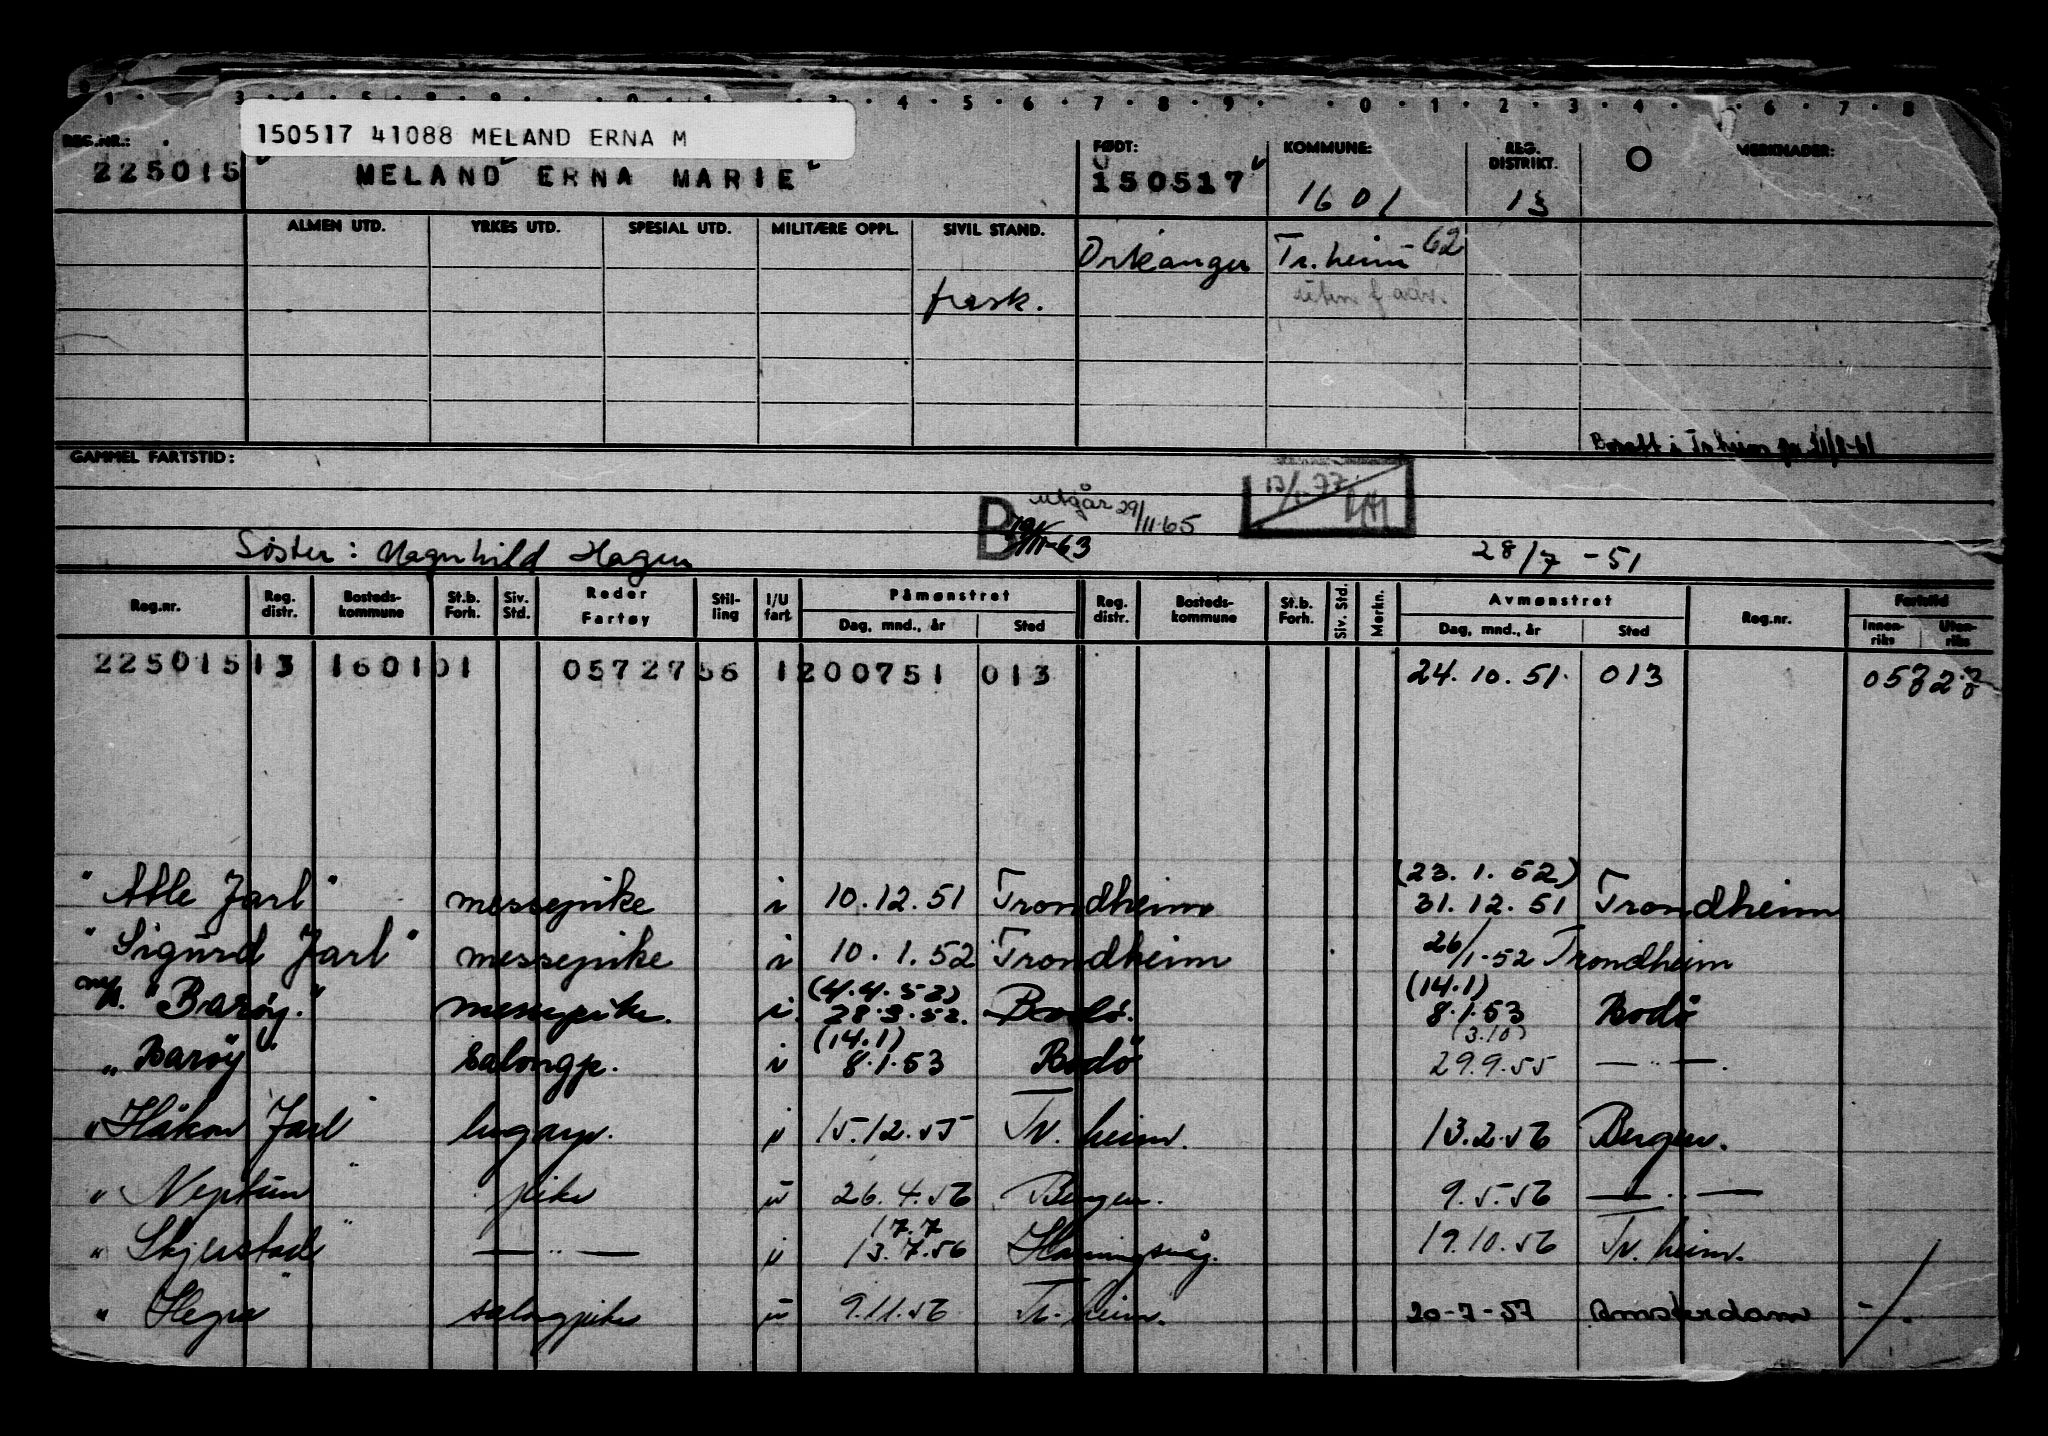 150517 41088 MELAND ERNA M
REG.NR.: FØDT: KOMMUNE: REG. DISTRIKT. MERKNADER:
225015 MELAND ERNA MARIE 150517 1601 13
ALMEN UTD. YRKES UTD. SPESIAL UTD. MILITÆRE OPPL. SIVIL STAND.
Orkanger Tr.heim 62
frask.
Bosatt i Tr.heim
GAMMEL FARTSTID:
B utgår 29/11-65
13/1-77
Søster: Magnhild Hagen 28/7-51
Reg.nr. Reg. distr. Bosteds- kommune St.b. Forh. Siv. Std. Reder Fartøy Stil- ling I/U fart. Påmønstret Dag, mnd., år Sted Reg. distr. Bosteds- kommune St.b. Forh. Siv. Std. Merkn. Avmønstret Dag, mnd., år Sted Reg.nr. Fartstid Innen- riks Uten- riks
225015 13 1601 01 0572756 1 200751 013 24.10.51. 013
(23.1.52)
"Atle Jarl" messepike i 10.12.51 Trondheim 31.12.51 Trondheim
"Sigurd Jarl" messepike i 10.1.52 Trondheim 26/1-52 Trondheim
(4.4.52) (14.1)
"Barøy." messepike. i. 28.3.52. Bodø. 8.1.53 Bodö
(14.1) (3.10)
"Barøy" salongp. i 8.1.53 Bodö 29.9.55 — " —.
"Håkon Jarl" lugarp. i 15.12.55 Tr.heim. 13.2.56 Bergen.
"Neptun" pike u 26.4.56 Bergen. 9.5.56 — " —
17.7
"Skjerstad" — " — i 13.7.56 Honningsvåg. 19.10.56 Tr.heim.
"Hegra" salongpike u 9.11.56 Tr.heim. 20-7-57 Amsterdam